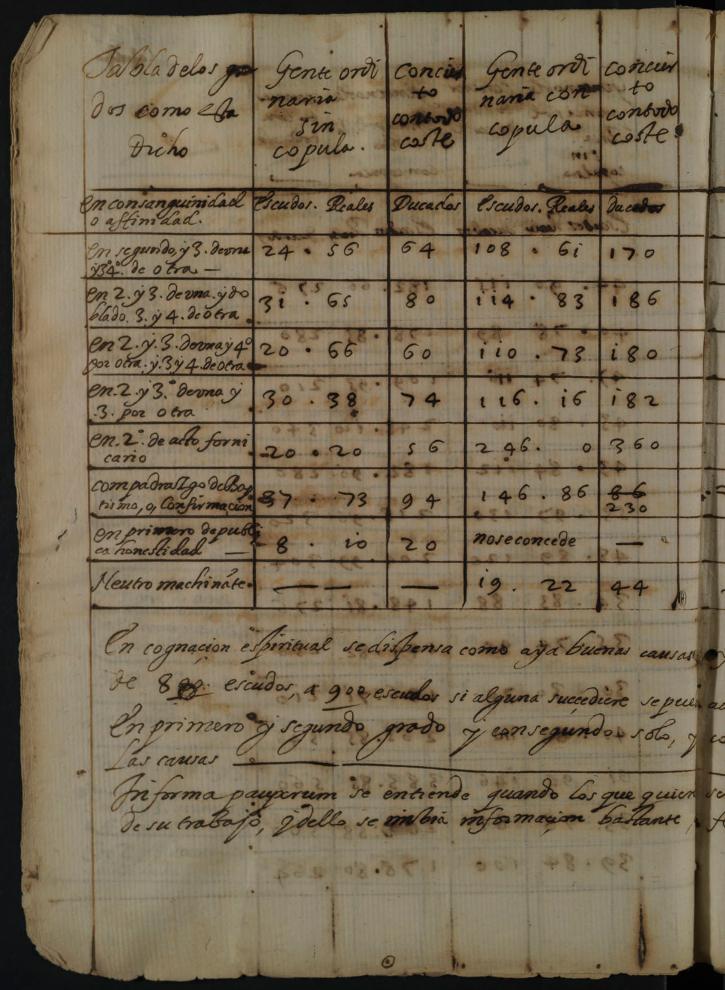 Tabla de los gra
dos como esta
dicho
Gente ordi
naria
sin
copula.
concier
to
contodo
coste
Gente ordi
naria con
copula
concier
to
contodo
coste
en consanguinidad
o affinidad.
escudos. Reales
Ducados
escudos. Reales
ducados
en segundo, y 3. de vna
y 3. 4. de otra —
24 . 56
64
108 . 61
170
en 2. y 3. de vna. y do
blado. 3. y 4. de otra
31 . 65
80
114 . 83
186
en 2. y 3. de vna y 4º
por otra. y 3 y 4. de otra
20 . 66
60
110 . 73
180
en. 2. y 3.º de vna y
.3. por otra
30 . 38
74
116 . 16
182
en. 2.º de acto forni
cario
20 . 20
56
246 . 0
360
compadrazgo de Bap
tismo, o, Confirmacion
37 . 73
94
146 . 86
86
230
en primero de publi
ca honestidad —
8 . 10
20
no se conçede
—
Neutro machinãte.
— —
—
19 . 22
44
En cognacion espiritual se dispensa como aya buenas causas
de 800 escudos, a 900 escudos si alguna succediere se pue
En primero y segundo grado y con segundo solo, y
Las causas
In forma pauperum se entiende quando los que quier
de su trabajo, q dello se imbia informaçion bastante,